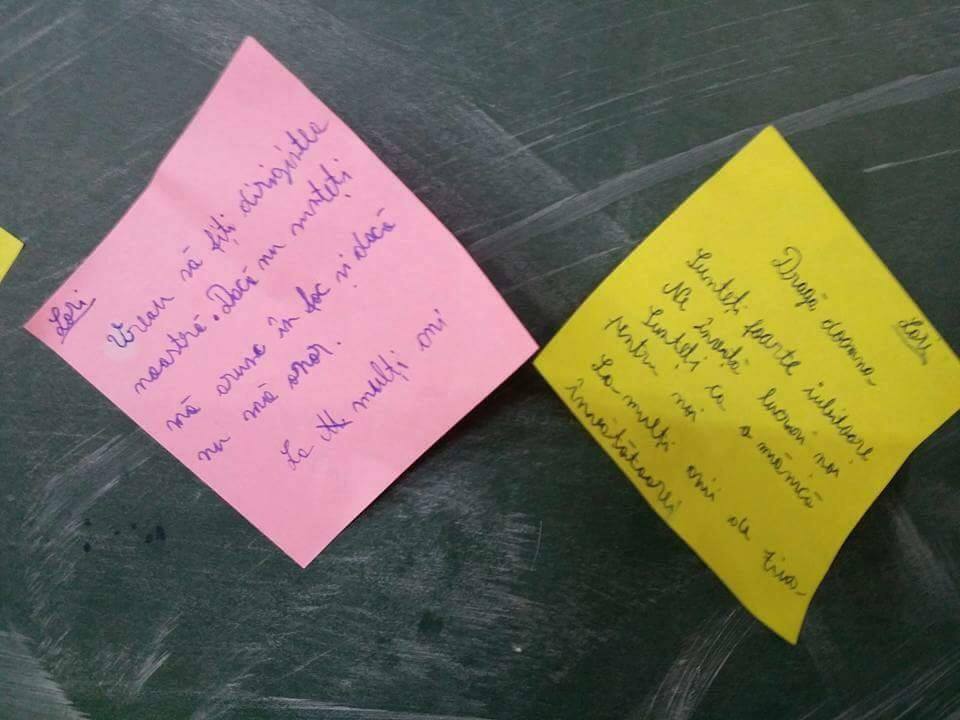 Lori
Vreau să fiți dirigintea
noastră. Dacă nu sunteți
mă arunc în foc și dacă
nu mă omor.
La multi ani
Lori
Dragă doamna
Sunteți foarte iubitoare
Ne învață lucruri noi
Sunteți ca o mămică
pentru noi
La mulți ani de ziua
învătătoarei